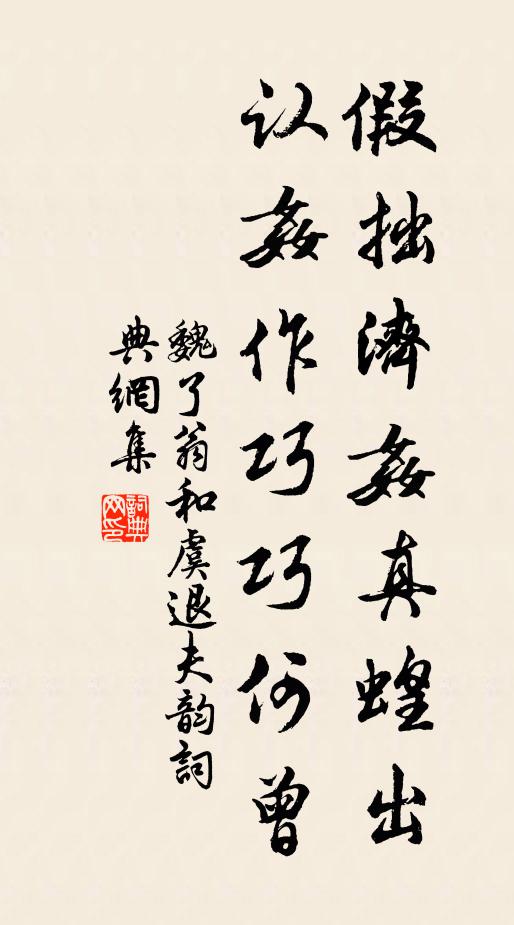 假拙濟姦真蝗出
认姦作巧巧何曾
魏了翁和虞退夫韵詞
典網集
詞典網印